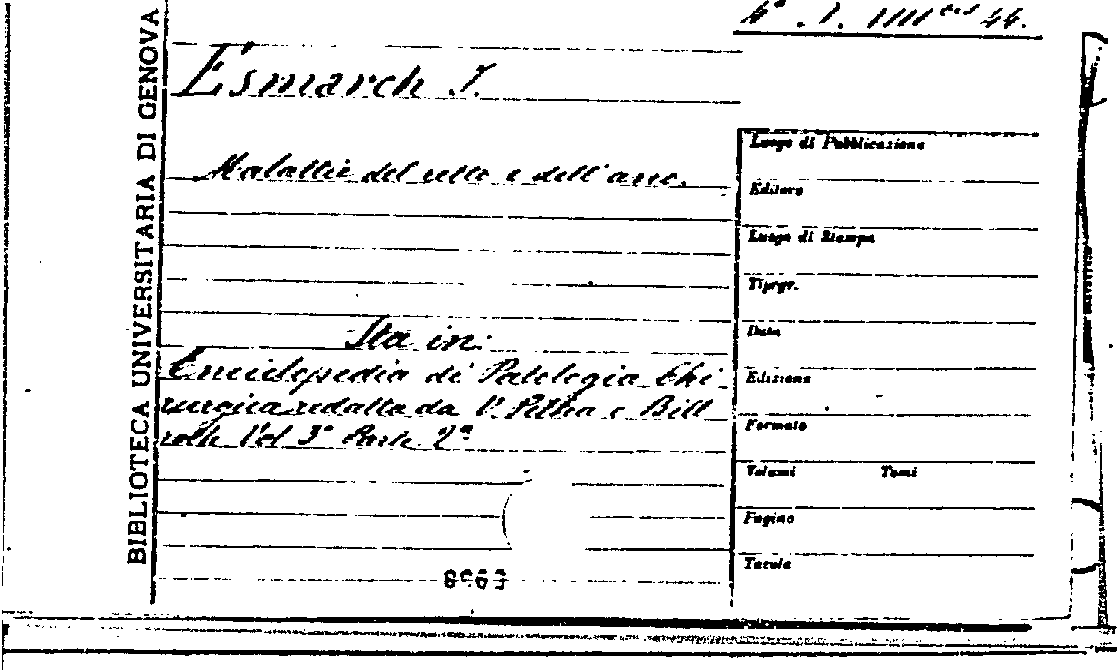 BIBLIOTECA UNIVERSITARIA DI GENOVA
Esmarch J.
Malattie del retto e dell'ano.
Sta in:
Enciclopedia di Patologia Chi
rurgica redatta da V. Pitha e Bill
roth Vol 3° Parte 2ª
Luogo di Pubblicazione
Editore
Luogo di Stampa
Tipogr.
Data
Edizione
Formato
Volumi Tomi
Pagine
Tavole